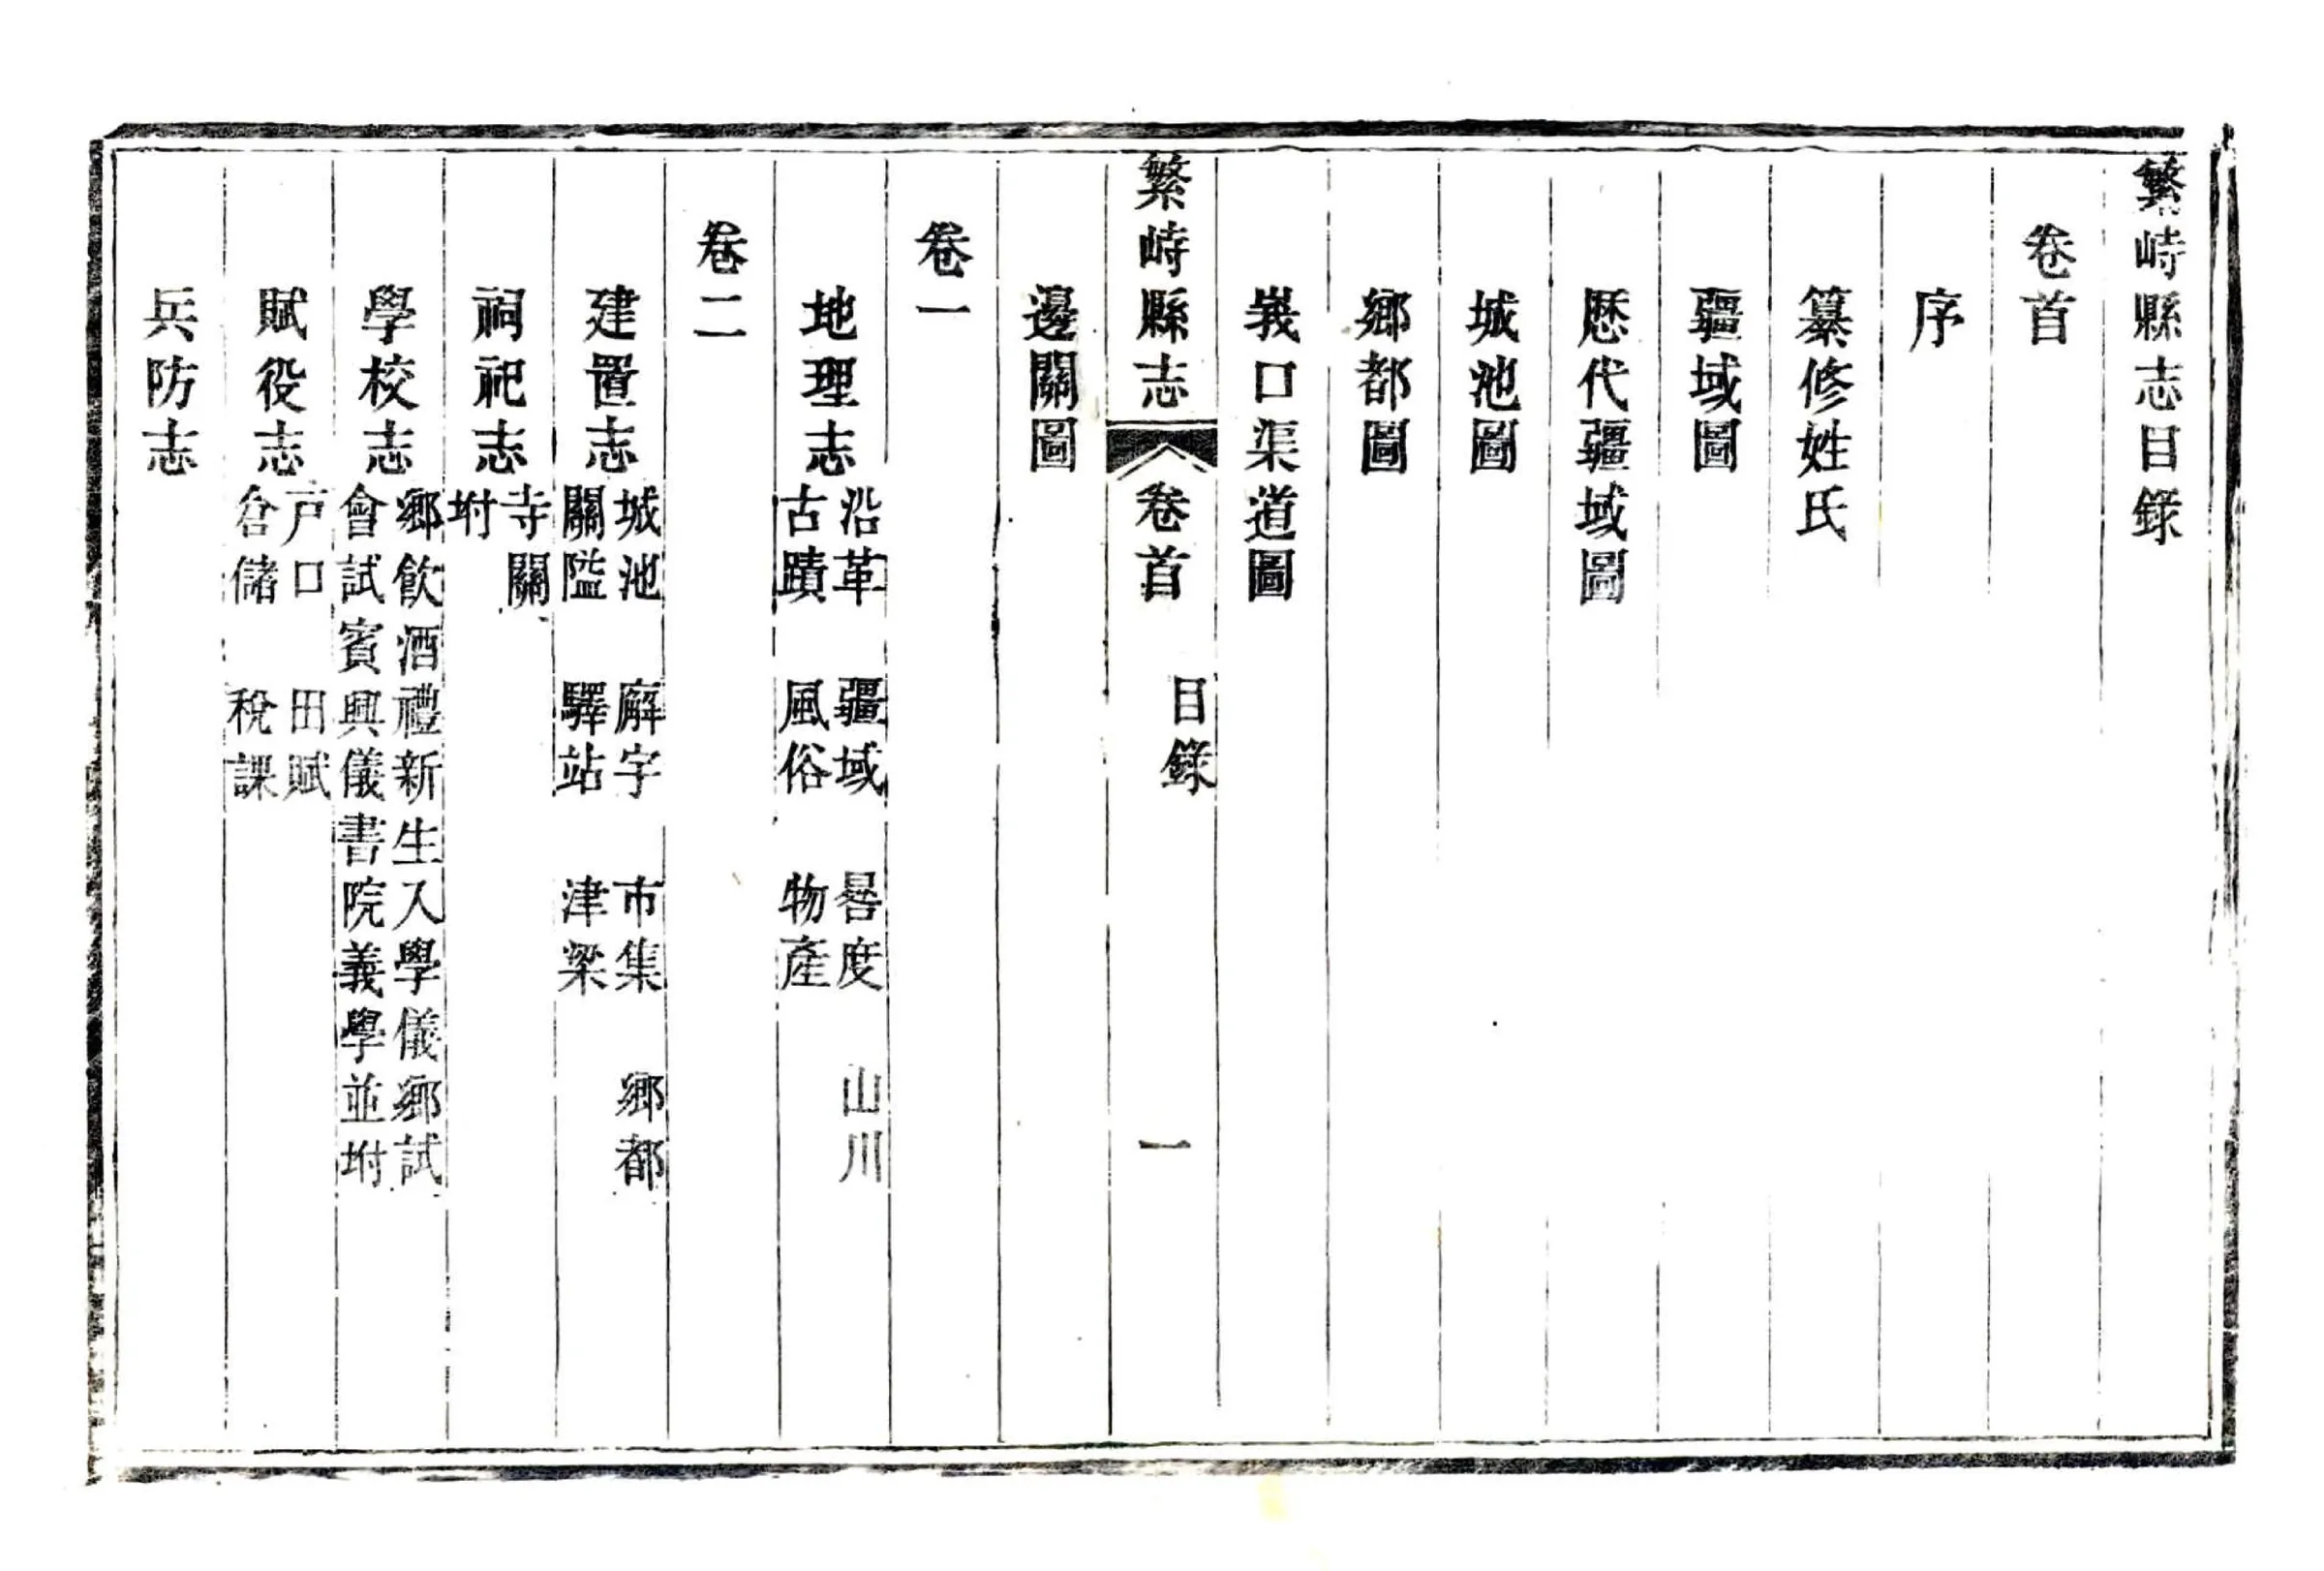 繁峙縣志目錄
卷首
序
纂修姓氏
疆域圖
歷代疆域圖
城池圖
鄉都圖
峩口渠道圖
繁峙縣志 卷首 目錄 一
邊關圖
卷一
地理志 沿革 疆域 晷度 山川
古蹟 風俗 物產
卷二
建置志 城池 廨宇 市集 鄉都
關隘 驛站 津梁
祠祀志 寺觀
坿
學校志 鄉飲酒禮新生入學儀鄉試
會試賓興儀書院義學並坿
賦役志 戶口 田賦
倉儲 稅課
兵防志